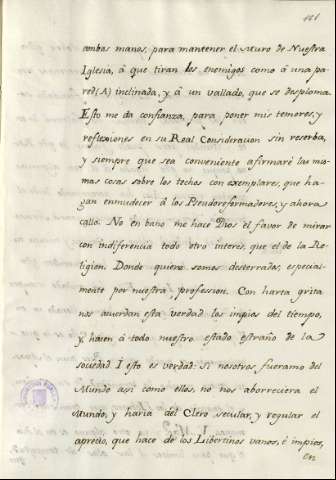 401
ambas manos, para mantener el Muro de Nuestra
Iglesia, á que tiran los enemigos como á una pa-
red(A) inclinada, y á un vallado, que se desploma.
Esto me da confianza, para poner mis temores, y
reflexiones en su Real Consideracion sin reserba,
y siempre que sea conveniente afirmaré las mis-
mas cosas sobre los techos con exemplares, que ha-
gan enmudecer á los Pseudoreformadores, y ahora
callo. No en bano me hace Dios el favor de mirar
con indiferencia todo otro interes, que el de la Re-
ligion. Donde quiera somos desterrados, especial-
mente por nuestra profession. Con harta grita
nos acuerdan esta verdad los impios del tiempo,
y hacen á todo nuestro estado estraño de la
sociedad I esto es verdad: Si nosotros fueramos del
Mundo asi como ellos, no nos aborreciera el
Mundo, y haria del Clero secular, y regular el
aprecio, que hace de los Libertinos vanos, é impios,
en